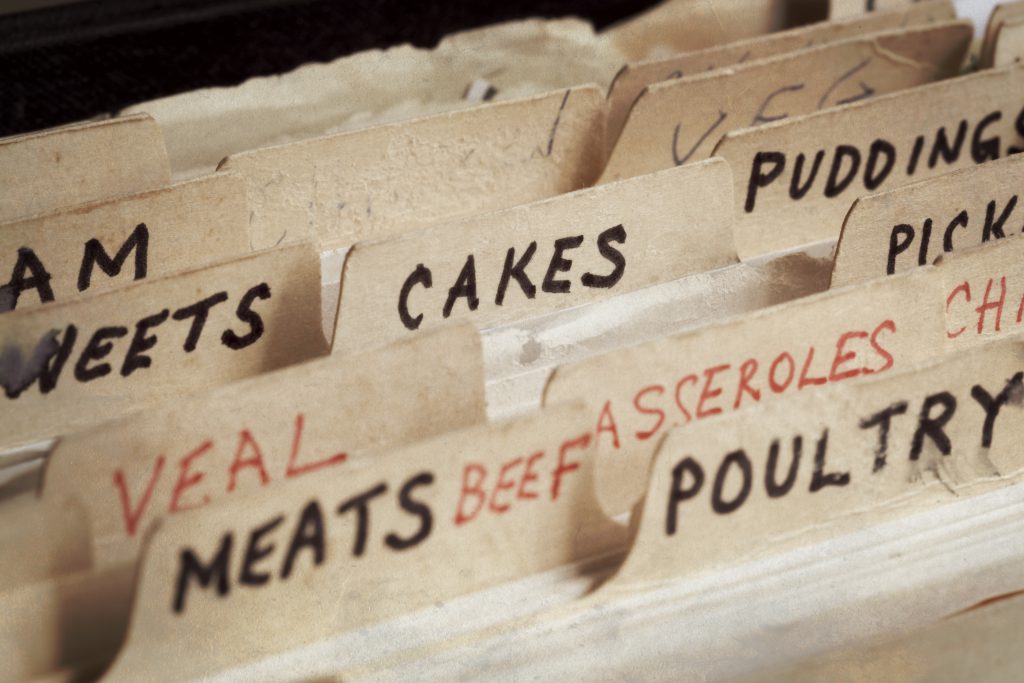 VEG
PUDDINGS
AM
CAKES
PICK
WEETS
CHI
ASSEROLES
VEAL
BEEF
POULTRY
MEATS